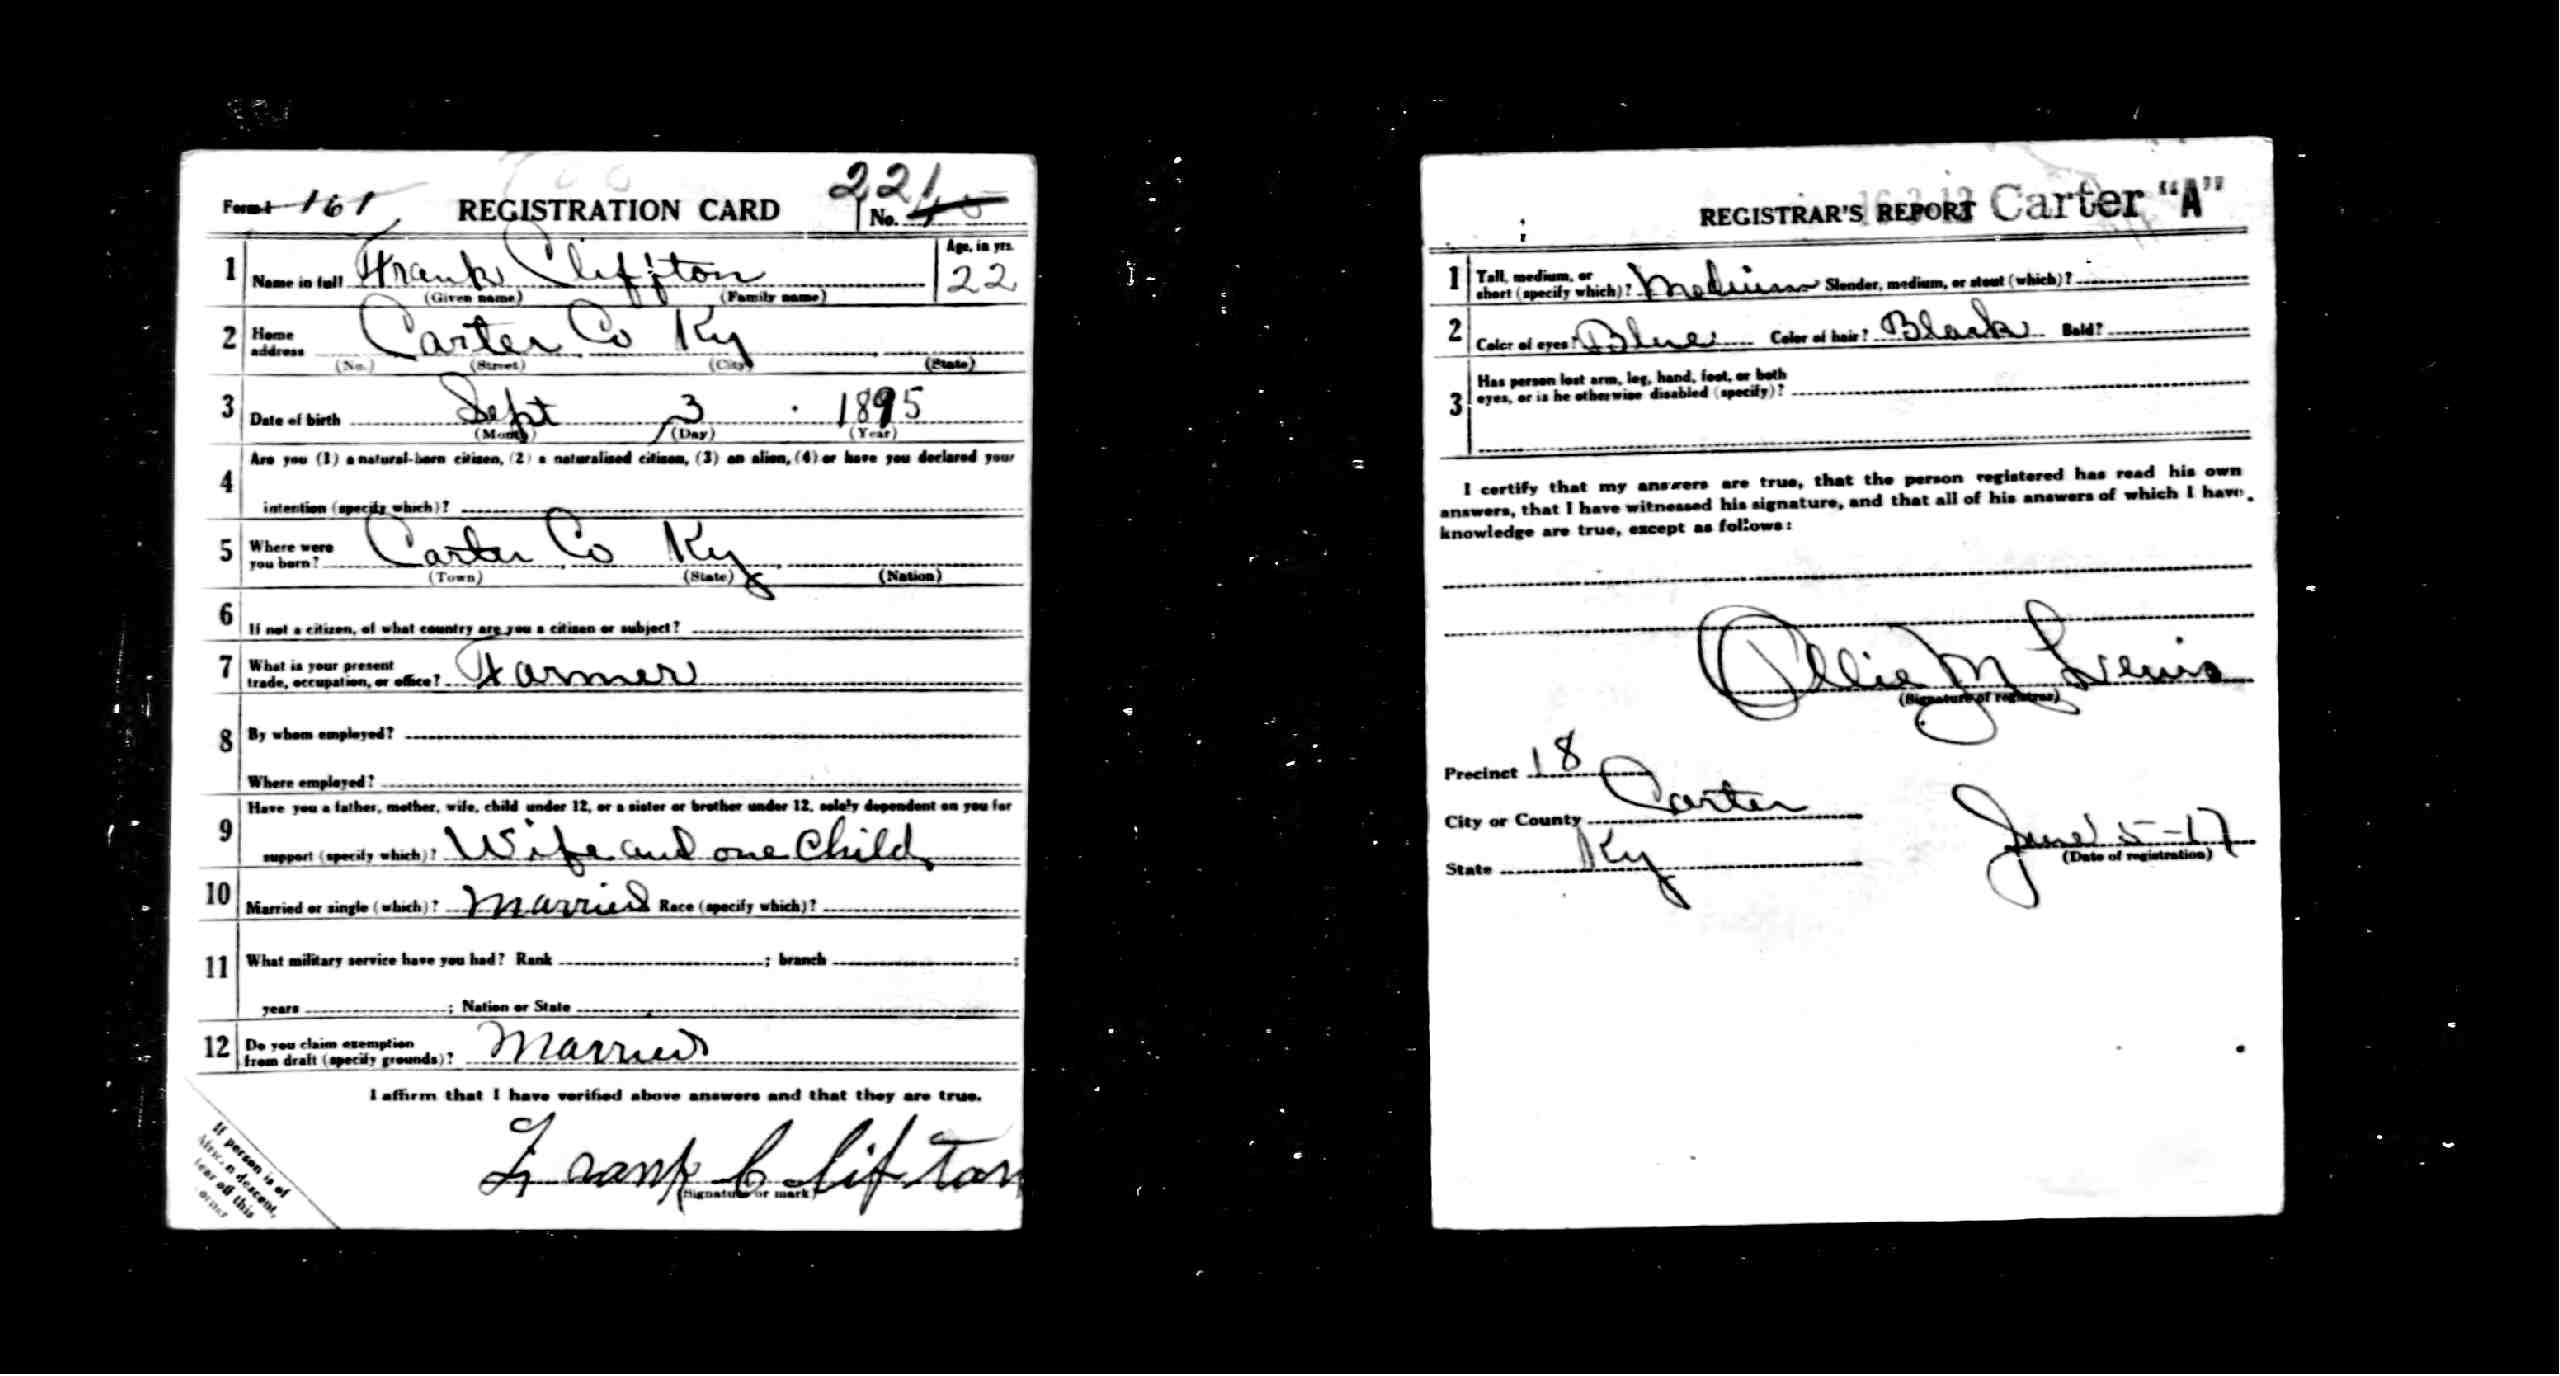 Form 1 161 REGISTRATION CARD No. 221
1 Name in full Frank Cliffton Age, in yrs. 22
(Given name) (Family name)
2 Home address Carter Co Ky
(No.) (Street) (City) (State)
3 Date of birth Sept 3 1895
(Month) (Day) (Year)
4 Are you (1) a natural-born citizen, (2) a naturalized citizen, (3) an alien, (4) or have you declared your
intention (specify which)?
5 Where were you born? Carter Co Ky
(Town) (State) (Nation)
6 If not a citizen, of what country are you a citizen or subject?
7 What is your present trade, occupation, or office? Farmer
8 By whom employed?
Where employed?
9 Have you a father, mother, wife, child under 12, or a sister or brother under 12, solely dependent on you for
support (specify which)? Wife and one Child
10 Married or single (which)? Married Race (specify which)?
11 What military service have you had? Rank ; branch ;
years ; Nation or State
12 Do you claim exemption from draft (specify grounds)? Married
I affirm that I have verified above answers and that they are true.
Frank Clifton
(Signature or mark)
If person is of
African descent,
tear off this
corner
REGISTRAR'S REPORT Carter "A"
1 Tall, medium, or short (specify which)? Medium Slender, medium, or stout (which)?
2 Color of eyes? Blue Color of hair? Black Bald?
3 Has person lost arm, leg, hand, foot, or both
eyes, or is he otherwise disabled (specify)?
I certify that my answers are true, that the person registered has read his own
answers, that I have witnessed his signature, and that all of his answers of which I have
knowledge are true, except as follows:
Ollie M Lewis
(Signature of registrar)
Precinct 18
City or County Carter
State Ky
June 5-17
(Date of registration)